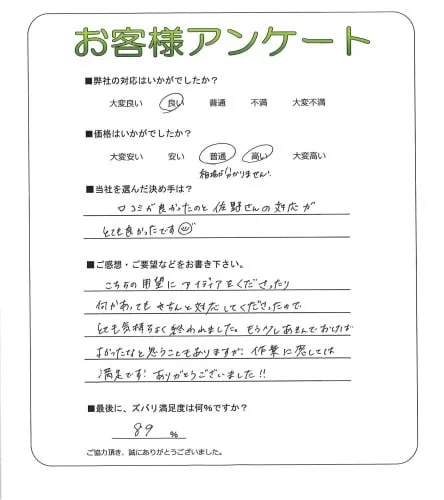 お客様アンケート
■弊社の対応はいかがでしたか？
大変良い 良い 普通 不満 大変不満
■価格はいかがでしたか？
大変安い 安い 普通 高い 大変高い
相場が分かりません。
■当社を選んだ決め手は？
口コミが良かったのと佐野さんの対応が
とても良かったです
■ご感想・ご要望などをお書き下さい。
こちらの用望にアイディアをくださったり
何かあってもきちんと対応してくださったので
とても気持ちよく終われました。もう少しあまんでおけば
よかったなと思うこともありますが、作業に関しては
満足です！ありがとうございました！！
■最後に、ズバリ満足度は何％ですか？
89 ％
ご協力頂き、誠にありがとうございました。